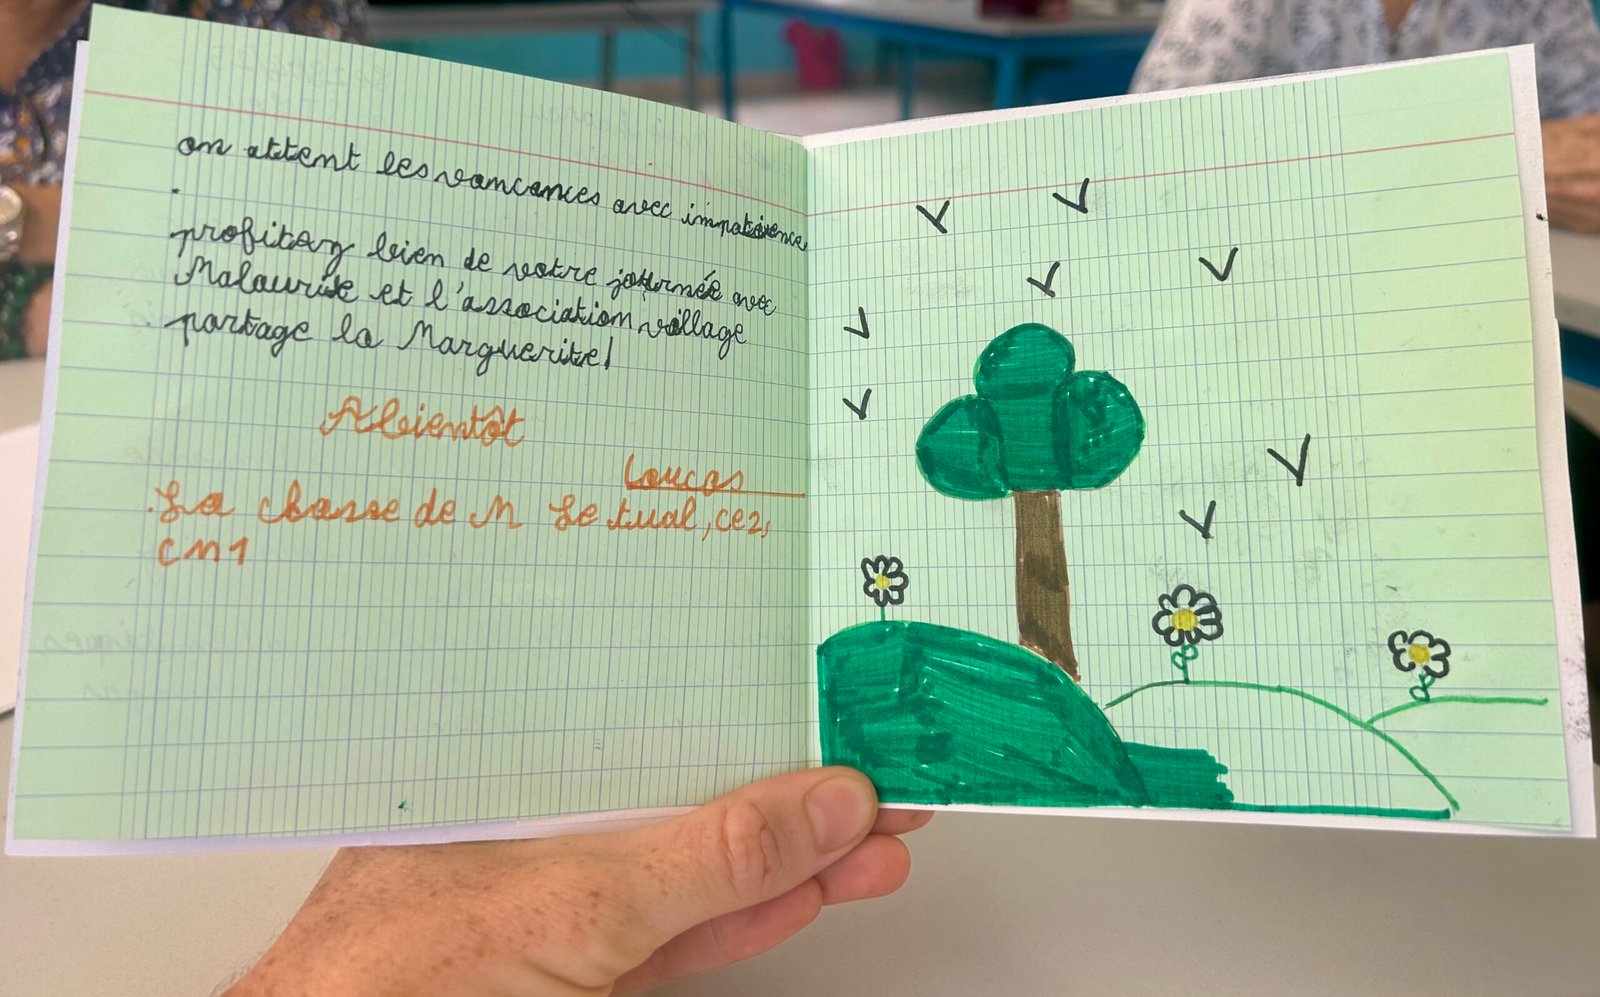 on attent les vancances avec impatience
.
profitez bien de votre journée avec
Malaurie et l'association village
partage la Marguerite!
Abientôt
Loucas
La classe de M Le tual, ce2,
cm1